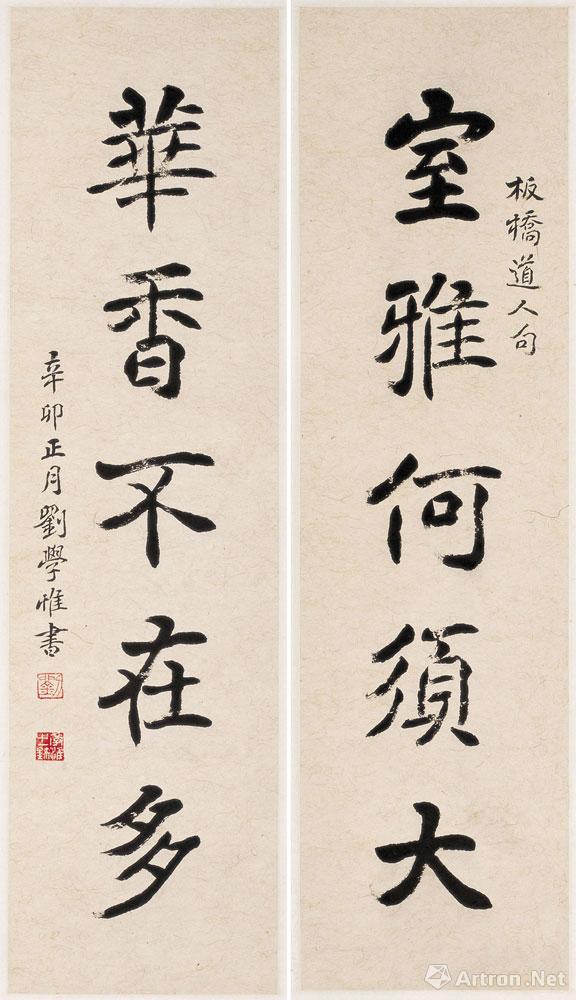 板橋道人句
室雅何須大
華香不在多
辛卯正月劉學惟書
劉
Artron.Net